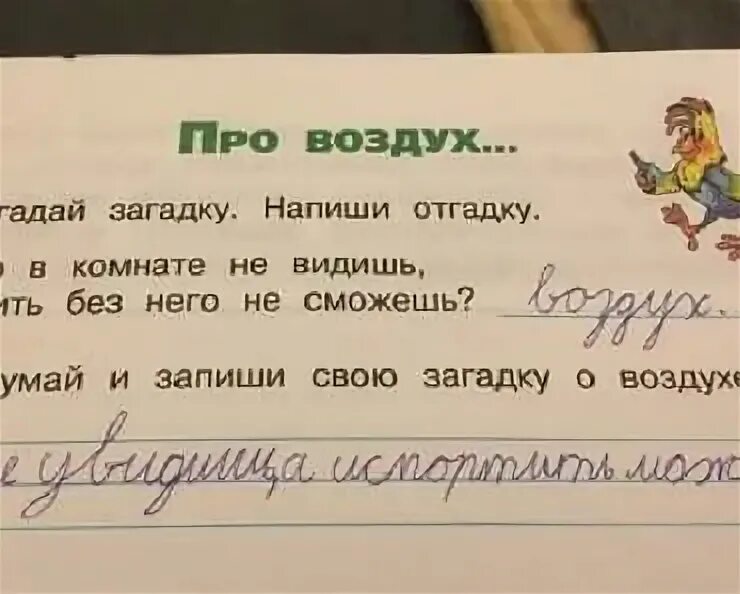 Про воздух...
гадай загадку. Напиши отгадку.
о в комнате не видишь,
ить без него не сможешь? воздух.
умай и запиши свою загадку о воздухе
е увидища испортить мож